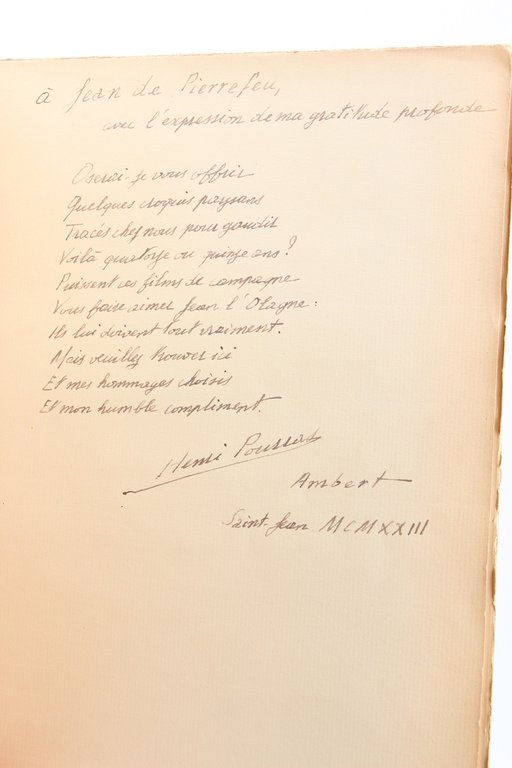 à Jean de Pierrefeu,
avec l'expression de ma gratitude profonde
Oserai-je vous offrir
Quelques croquis paysans
Tracés chez nous pour gaudir
Voilà quatorze ou quinze ans ?
Puissent ces films de campagne
Vous faire aimer Jean l'Olagne :
Ils lui doivent tout vraiment.
Mais veuillez trouver ici
Et mes hommages choisis
Et mon humble compliment.
Henri Pourrat
Ambert
Saint-Jean MCMXXIII